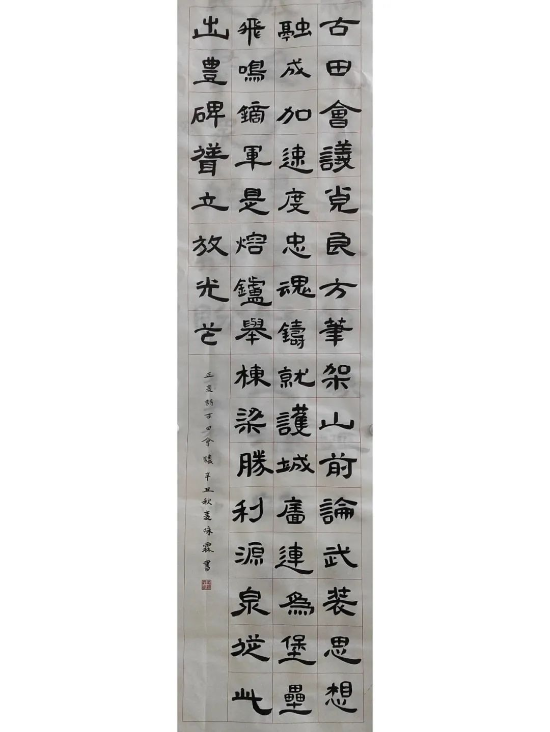 古田會議覓良方筆架山前論武裝思想
融成加速度忠魂鑄就護城廧連為堡壘
飛鳴鏑軍是熔鑪舉棟梁勝利源泉從此
出豊碑聳立放光芒
辛丑秋孟 霖書